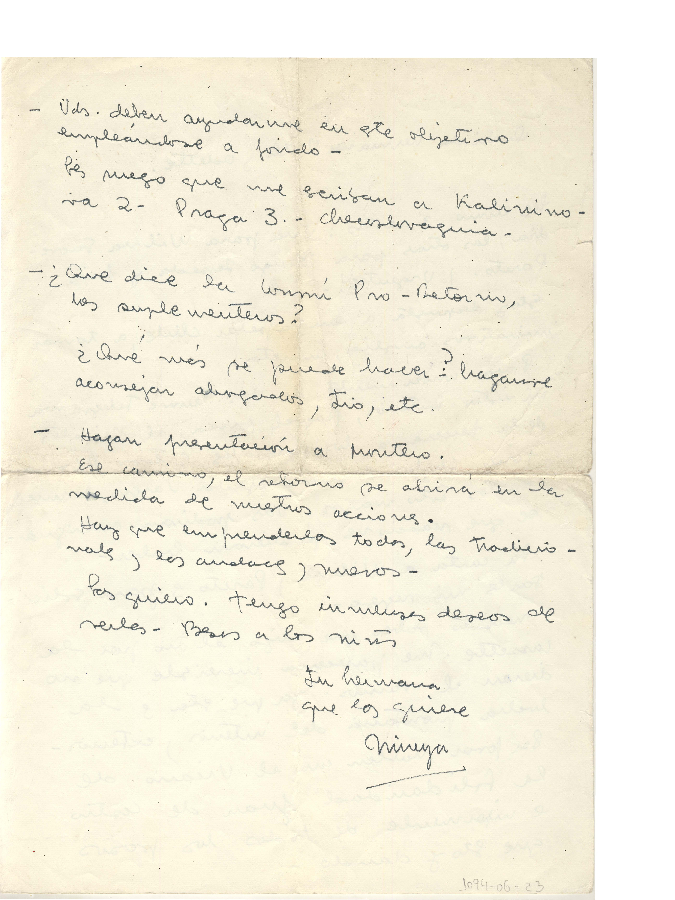 - Uds. deben ayudarme en este objetivo
empleándose a fondo -
Les ruego que me escriban a Kalinino-
va 2 - Praga 3. - Checoslovaquia.
- ¿Que dice la Pro-Retorno,
los suplementeros?
¿Qué más se puede hacer? háganse
aconsejar abogados, Tío, etc.
- Hagan presentación a Montero.
Ese camino, el retorno se abrirá en la
medida de nuestras acciones.
Hay que emprenderlos todos, las tradicio-
nales y los audaces y nuevos -
Los quiero. Tengo inmensos deseos de
verlos - Besos a los niños
Tu hermana
que los quiere
Mireya
1094-06-23